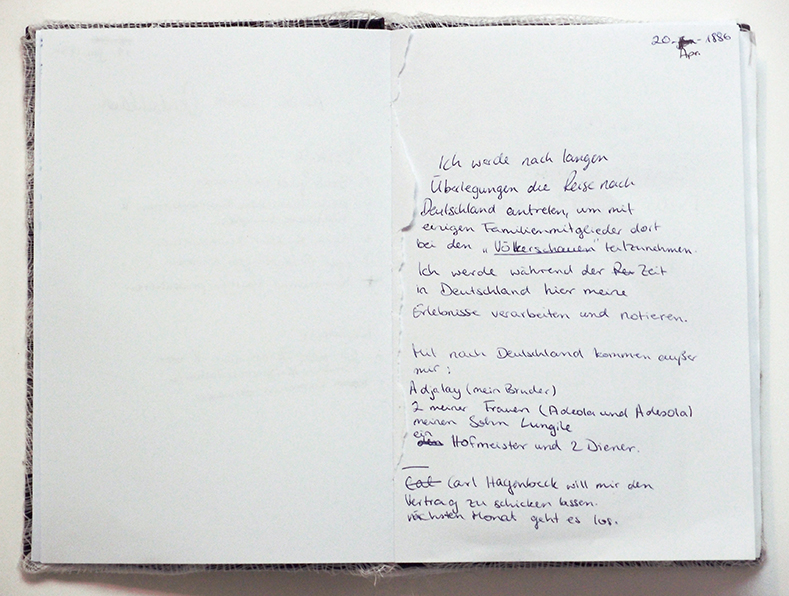 20. Apr. - 1886
Ich werde nach langen
Überlegungen die Reise nach
Deutschland antreten, um mit
einigen Familienmitglieder dort
bei den „Völkerschauen" teilzunehmen.
Ich werde während der Rei Zeit
in Deutschland hier meine
Erlebnisse verarbeiten und notieren.
Mit nach Deutschland kommen außer
mir:
Adjalay (mein Bruder)
2 meiner Frauen (Adeola und Adesola)
meinen Sohn Lungile
ein Hofmeister und 2 Diener.
Carl Hagenbeck will mir den
Vertrag zu schicken lassen.
nächsten Monat geht es los.